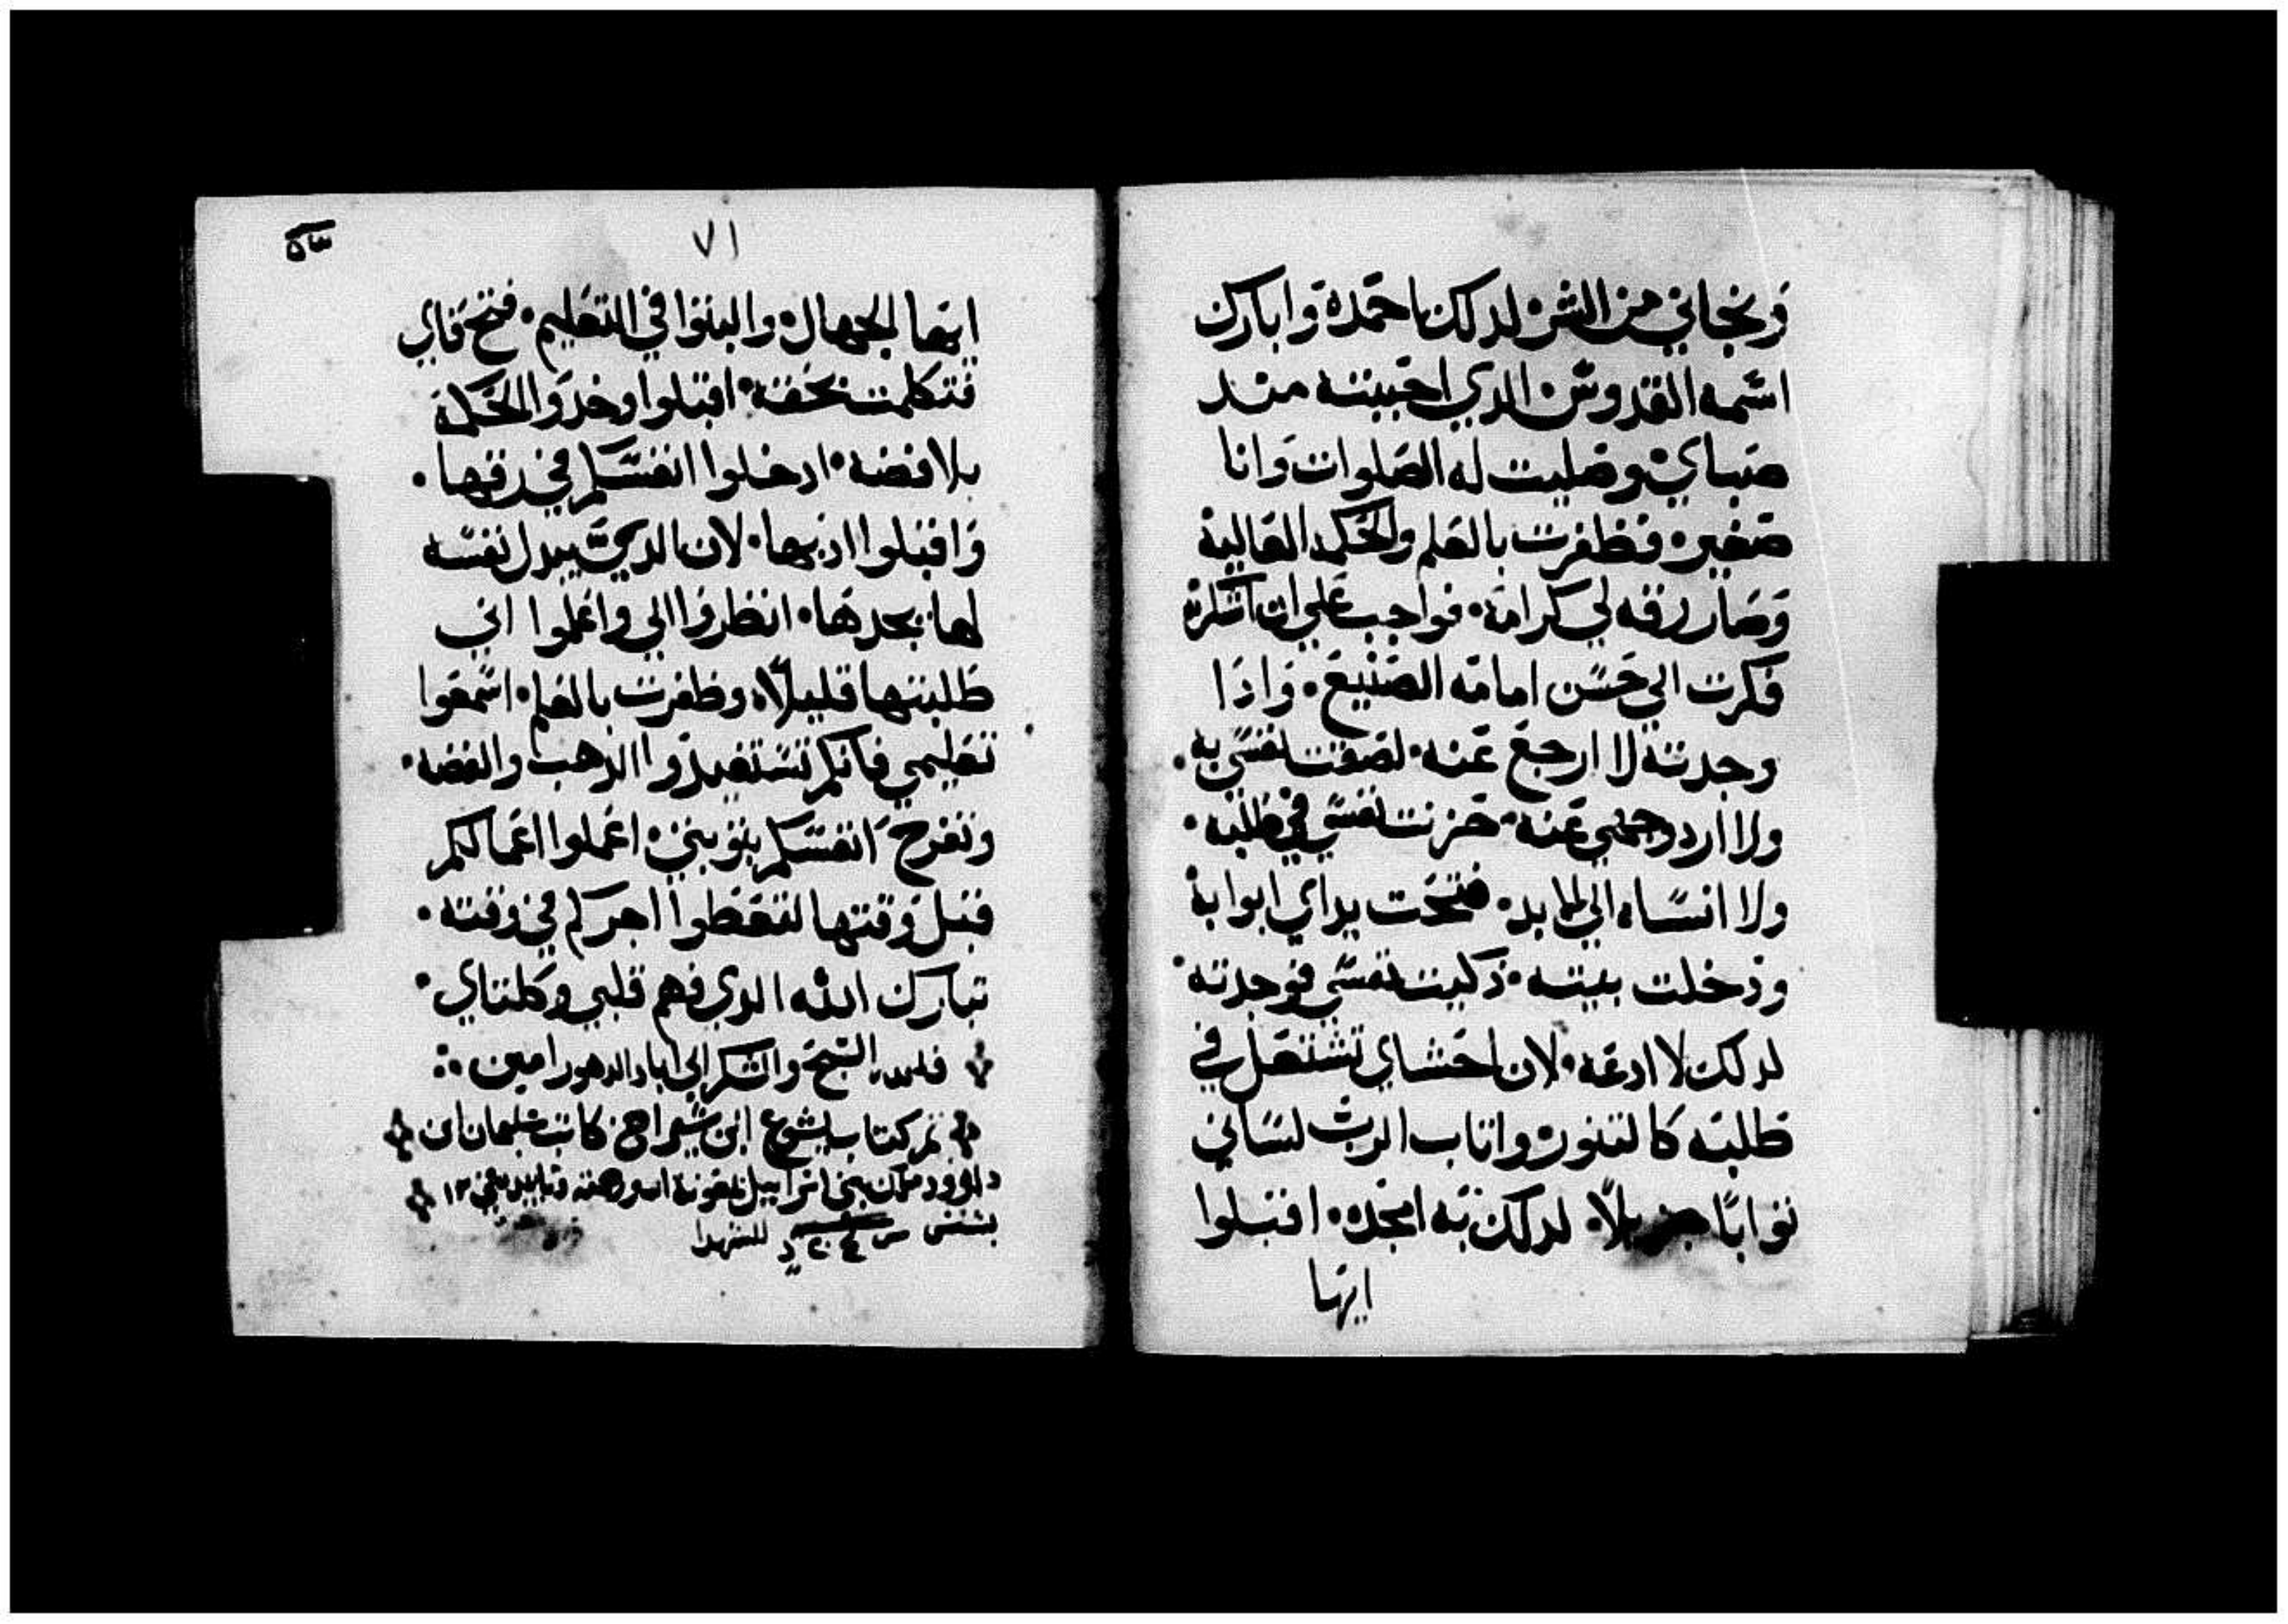 ونجاني من الشر لدلك احمده وابارك
اسمه القدوس الدي احببته مند
صباي وصليت له الصلوات وانا
صغير فظفرت بالعلم والحكمه العالية
وصار رزقه لي كرامة فواجب علي ان اشكره
فكرت الي حسن امامه الصنيع واذا
وجدته لا ارجع عنه لصقت نفسي به
ولا اردد وجهي عنه حزنت نفسي في طلبه
ولا انساه الي الابد فتحت يداي ابوابه
ودخلت بيته ذكيت نفسي فوجدته
لدلك لا ادعه لان احشاي تشتعل في
طلبه كالتنور واتاب الرب لساني
ثوابًا جزيلًا لدلك به امجده اقبلوا
ايها
٧١
ايها الجهال والبثوا في التعليم فتح فاي
فتكلمت بخفة اقبلوا وخدوا الحكمة
بلا فضه ادخلوا انفسكم في رقها
واقبلوا ادبها لان الدي يبدل نفسه
لها يجدها انظروا الي واعلموا اني
طلبتها قليلًا وظفرت بالعلم اسمعوا
تعليمي فانكم تستفيدوا الدهب والفضه
وتفرح انفسكم بتوبتي اعملوا اعمالكم
قبل وقتها لتعطوا اجركم في وقته
تبارك الله الدي فهم قلبي وكلمتاي
فله التسبيح والشكر الي اباد الدهور امين
تم كتاب يشوع ابن شيراخ كاتب سليمان ابن
داوود ملك بني اسراييل بمعونة الله وحسن تاييده في ١٢
بشنس للشهدا